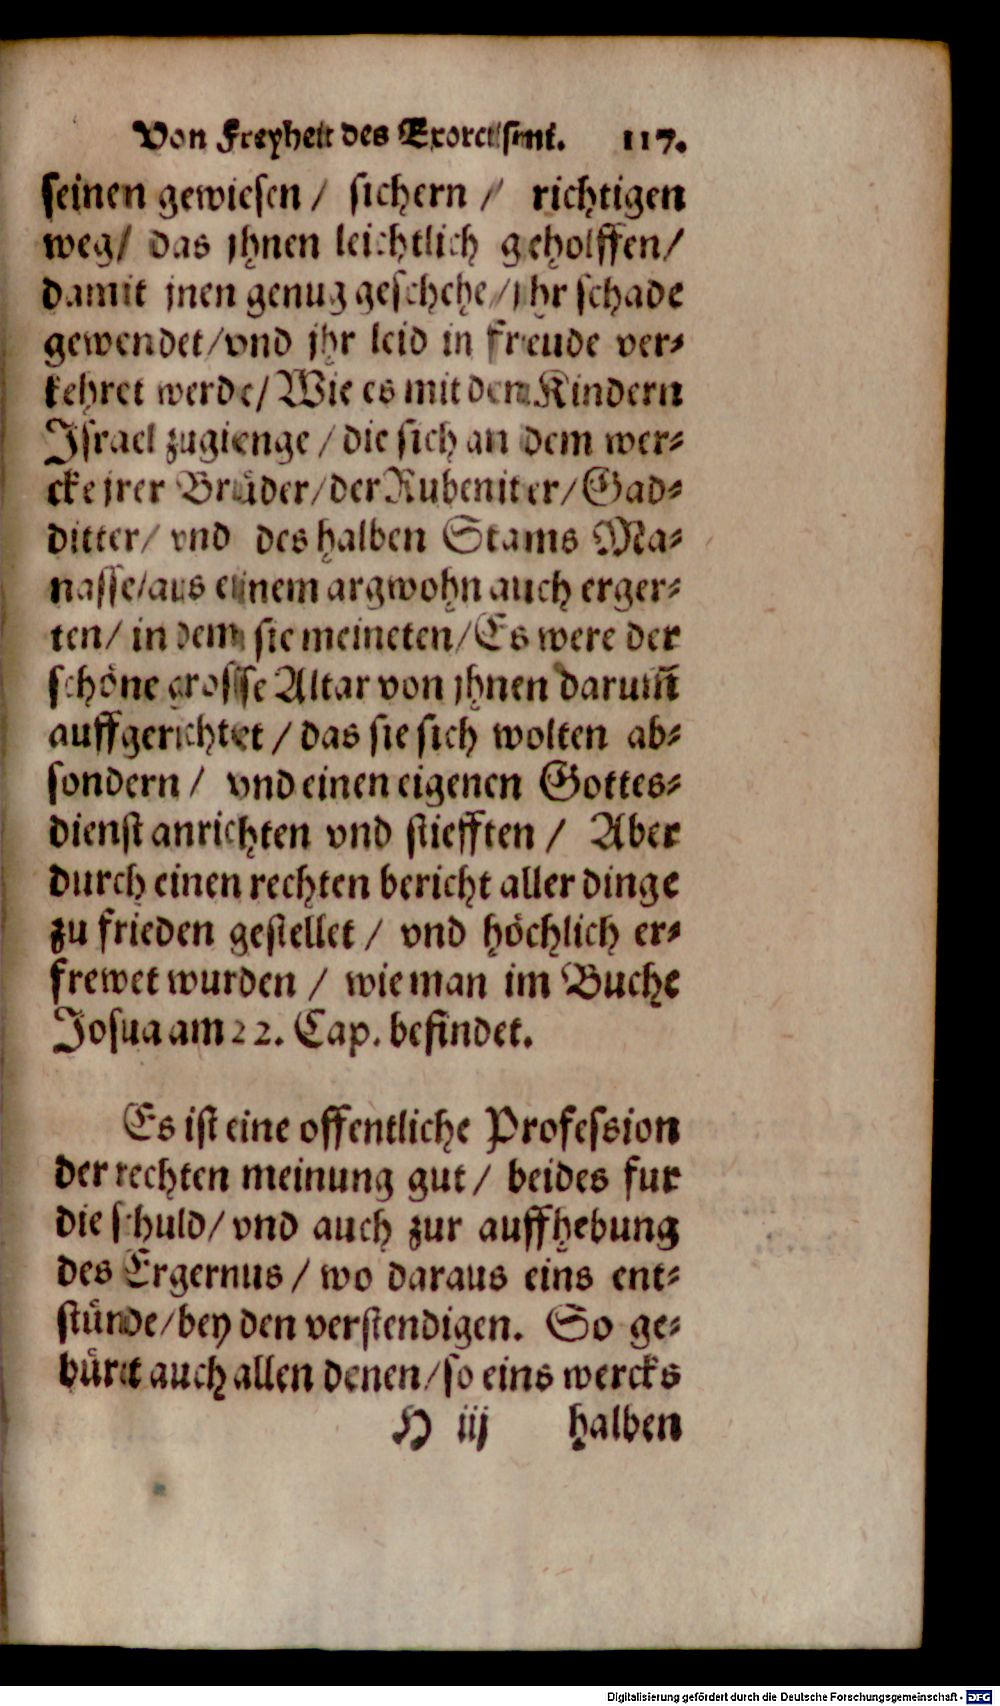 Von Freyheit des Exorcismi. 117.
seinen gewiesen / sichern / richtigen
weg / das jhnen leichtlich geholffen /
damit jnen genug geschehe / jhr schade
gewendet / vnd jhr leid in freude ver⸗
kehret werde / Wie es mit den Kindern
Israel zugienge / die sich an dem wer⸗
cke jrer Brüder / der Rubeniter / Gad⸗
ditter / vnd des halben Stams Ma⸗
nasse / aus einem argwohn auch erger⸗
ten / in dem sie meineten / Es were der
schöne grosse Altar von jhnen darum̃
auffgerichtet / das sie sich wolten ab⸗
sondern / vnd einen eigenen Gottes⸗
dienst anrichten vnd stiefften / Aber
durch einen rechten bericht aller dinge
zu frieden gestellet / vnd höchlich er⸗
frewet wurden / wie man im Buche
Josua am 22. Cap. befindet.
Es ist eine offentliche Profession
der rechten meinung gut / beides fur
die schuld / vnd auch zur auffhebung
des Ergernus / wo daraus eins ent⸗
stünde / bey den verstendigen. So ge⸗
büret auch allen denen / so eins wercks
H iij halben
Digitalisierung gefördert durch die Deutsche Forschungsgemeinschaft - DFG